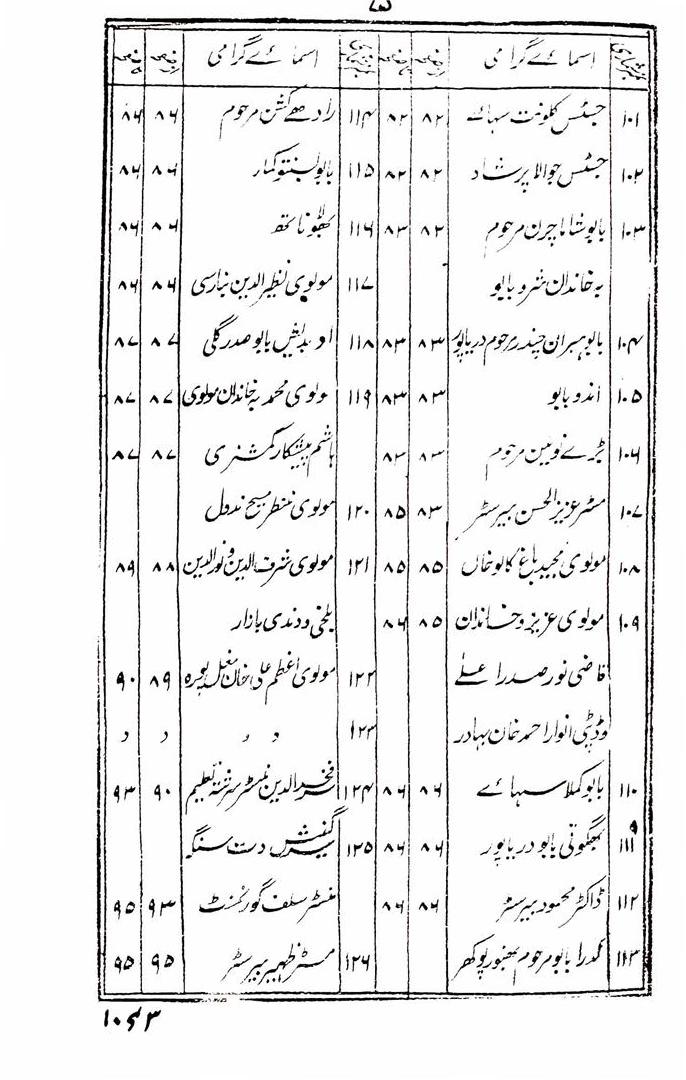 ۵
نمبر شمار اسمائے گرامی از صفحہ تا صفحہ نمبر شمار اسمائے گرامی از صفحہ تا صفحہ
۱۰۱ جسٹس کلونت سہائے ۸۲ ۸۲
۱۰۲ جسٹس جوالا پرشاد ۸۲ ۸۲
۱۰۳ بابو شاما چرن مرحوم ۸۲ ۸۳
بہ خاندان شرو بابو
۱۰۴ بابو ہیران چندر مرحوم دریاپور ۸۳ ۸۳
۱۰۵ انذو بابو ۸۳ ۸۳
۱۰۶ بڑے نوبین مرحوم ۸۳ ۸۳
۱۰۷ مسٹر عزیز الحسن بیرسٹر ۸۳ ۸۵
۱۰۸ مولوی مجید باغ کالو خاں ۸۵ ۸۵
۱۰۹ مولوی عزیز و خاندان ۸۵ ۸۶
قاضی نور صدر اعلے
وڈپٹی انوار احمد خان بہادر
۱۱۰ بابو کملا سہائے ۸۶ ۸۶
۱۱۱ بھگوتی بابو دریاپور ۸۶ ۸۶
۱۱۲ ڈاکٹر محمود بیرسٹر ۸۶ ۸۶
۱۱۳ بابو مرحوم بھنور پوکھر
۱۱۴ رادھے کشن مرحوم ۸۶ ۸۶
۱۱۵ بابو بسنتو کمار ۸۶ ۸۶
۱۱۶ بھولا ناتھ ۸۶ ۸۶
۱۱۷ مولوی نظیر الدین بنارسی ۸۶ ۸۶
۱۱۸ بابو صدر گلی ۸۷ ۸۷
۱۱۹ مولوی محمد بہ خاندان مولوی ۸۷ ۸۷
ہاشم پیشکار کمشنری ۸۷ ۸۷
۱۲۰ مولوی منظر مسیح ندول
۱۲۱ مولوی شرف الدین و نور الدین ۸۸ ۸۹
بلخی و دندی بازار
۱۲۲ مولوی اعظم علی خان مغل پورہ ۸۹ ۹۰
۱۲۳ ” ” ” ”
۱۲۴ فخر الدین منسٹر سررشتہ تعلیم ۹۰ ۹۳
۱۲۵ گنیش دت سنگھ
منسٹر سلف گورنمنٹ ۹۳ ۹۵
۱۲۶ مسٹر ظہیر بیرسٹر ۹۵ ۹۵